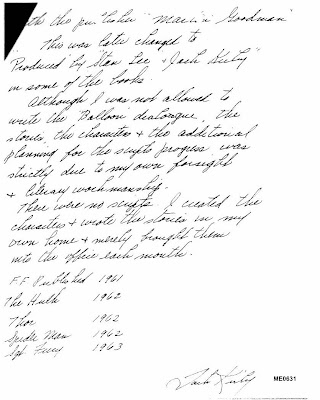 the publisher "Martin Goodman"
This was later changed to
Produced by "Stan Lee & Jack Kirby"
in some of the books.
Although I was not allowed to
write the Balloon dialogue, the
stories, the characters & the additional
planning for the scripts progress was
strictly due to my own foresight
& literary workmanship.
There were no scripts. I created the
characters & wrote the stories in my
own home & merely brought them
into the office each month.
F.F. Published 1961
The Hulk 1962
Thor 1962
Spider Man 1962
Sgt Fury 1963
Jack Kirby
ME0631